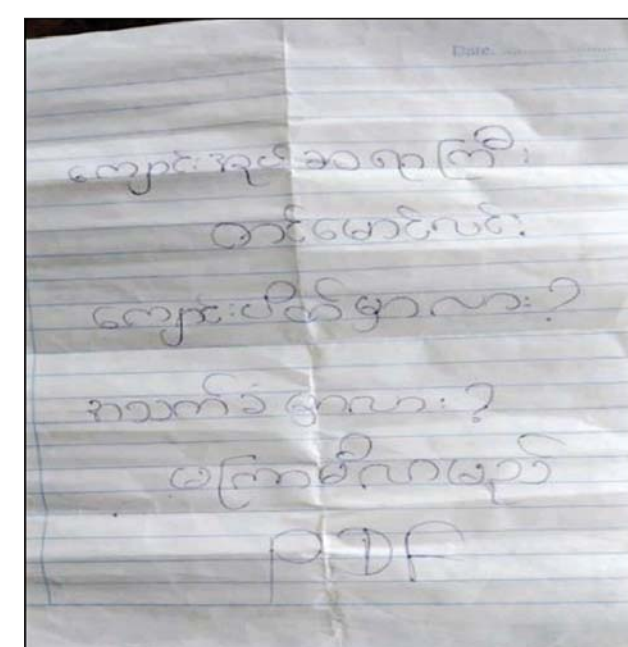 Date:
ကျောင်းအုပ်ဆရာကြီး
တင်မောင်လင်း
ကျောင်းပိတ်မှာလား?
အသက်ခံမှာလား?
မကြာမီလာမည်
PDF